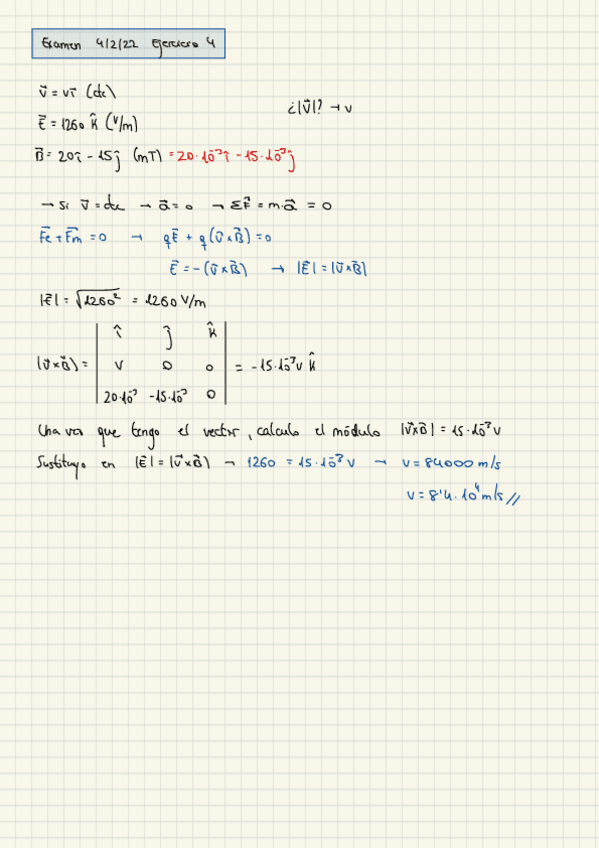 Examen 4/2/22 Ejercicio 4
v⃗ = vî (cte)
¿|v⃗|? → v
E⃗ = 1260 k̂ (V/m)
B⃗ = 20î - 15ĵ (mT) = 20·10⁻³î - 15·10⁻³ĵ
→ Si v⃗ = cte → a⃗ = 0 → ΣF⃗ = m·a⃗ = 0
F⃗e + F⃗m = 0 → qE⃗ + q(v⃗×B⃗) = 0
E⃗ = -(v⃗×B⃗) → |E⃗| = |v⃗×B⃗|
|E⃗| = √1260² = 1260 V/m
î ĵ k̂
|v⃗×B⃗| = v 0 0 = -15·10⁻³v k̂
20·10⁻³ -15·10⁻³ 0
Una vez que tengo el vector, calculo el módulo |v⃗×B⃗| = 15·10⁻³v
Sustituyo en |E⃗| = |v⃗×B⃗| → 1260 = 15·10⁻³v → v = 84000 m/s
v = 8'4·10⁴ m/s //